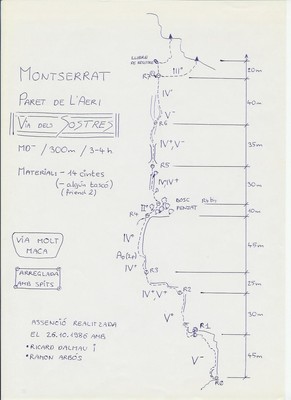 MONTSERRAT
PARET DE L'AERI
VIA DELS SOSTRES
MD⁻ / 300m / 3-4h
MATERIAL: - 14 cintes
(- algún tascó)
(friend 2)
VIA MOLT
MACA
ARREGLADA
AMB SPITS
ASSENCIÓ REALITZADA
EL 26.10.1986 AMB
• RICARD DALMAU i
• RAMON ARBÓS
LLIBRE
DE REGISTRE
III⁺
R7
20m
IV⁺
40m
V⁻
R6
IV⁺,V⁻
35m
R5
IV,IV⁺
30m
BOSC
PENJAT
R4 bis
II⁺
R4
10m
IV⁺
45m
A₀(2p)
IV⁺
R3
25m
IV⁺,V⁺
R2
30m
V⁺
R1
V⁻
45m
R0